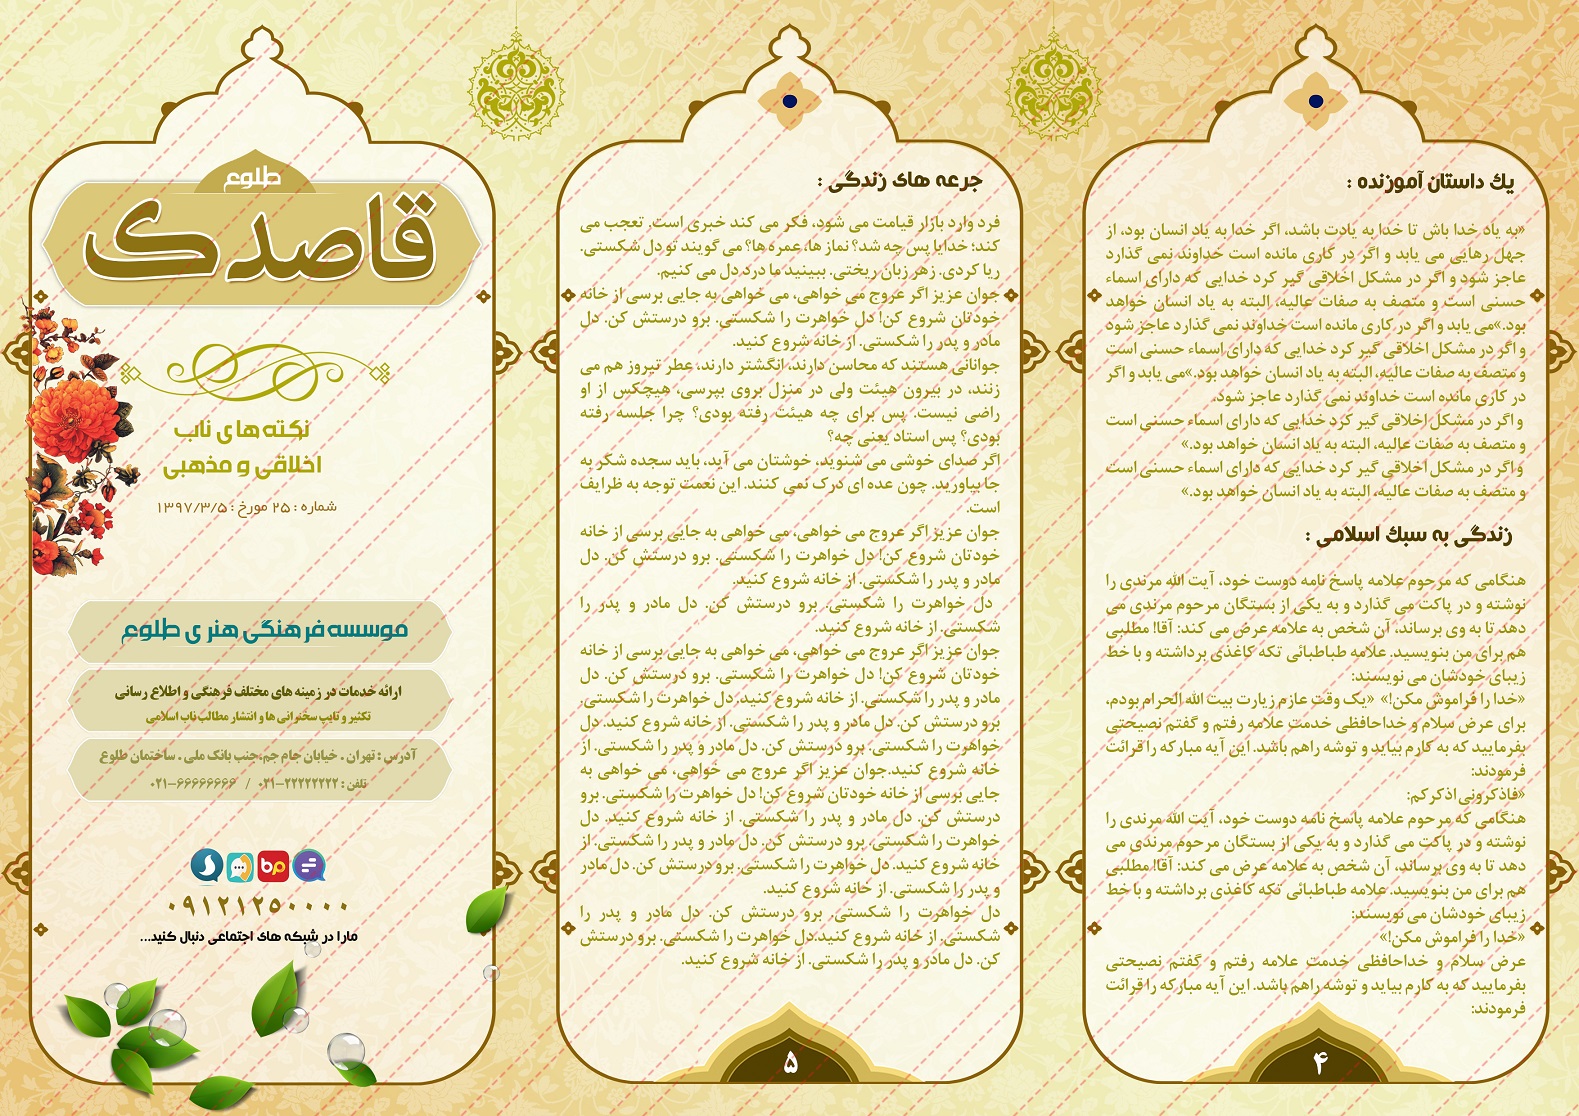 یک داستان آموزنده :
«به یاد خدا باش تا خدا به یادت باشد، اگر خدا به یاد انسان بود، از
جهل رهایی می یابد و اگر در کاری مانده است خداوند نمی گذارد
عاجز شود و اگر در مشکل اخلاقی گیر کرد خدایی که دارای اسماء
حسنی است و متصف به صفات عالیه، البته به یاد انسان خواهد
بود.»می یابد و اگر در کاری مانده است خداوند نمی گذارد عاجز شود
و اگر در مشکل اخلاقی گیر کرد خدایی که دارای اسماء حسنی است
و متصف به صفات عالیه، البته به یاد انسان خواهد بود.»می یابد و اگر
در کاری مانده است خداوند نمی گذارد عاجز شود.
و اگر در مشکل اخلاقی گیر کرد خدایی که دارای اسماء حسنی است
و متصف به صفات عالیه، البته به یاد انسان خواهد بود.»
و اگر در مشکل اخلاقی گیر کرد خدایی که دارای اسماء حسنی است
و متصف به صفات عالیه، البته به یاد انسان خواهد بود.»
زندگی به سبک اسلامی :
هنگامی که مرحوم علامه پاسخ نامه دوست خود، آیت الله مرندی را
نوشته و در پاکت می گذارد و به یکی از بستگان مرحوم مرندی می
دهد تا به وی برساند، آن شخص به علامه عرض می کند: آقا! مطلبی
هم برای من بنویسید. علامه طباطبائی تکه کاغذی برداشته و با خط
زیبای خودشان می نویسند:
«خدا را فراموش مکن!» «یک وقت عازم زیارت بیت الله الحرام بودم،
برای عرض سلام و خداحافظی خدمت علامه رفتم و گفتم نصیحتی
بفرمایید که به کارم بیاید و توشه راهم باشد. این آیه مبارکه را قرائت
فرمودند:
«فاذکرونی اذکرکم:
هنگامی که مرحوم علامه پاسخ نامه دوست خود، آیت الله مرندی را
نوشته و در پاکت می گذارد و به یکی از بستگان مرحوم مرندی می
دهد تا به وی برساند، آن شخص به علامه عرض می کند: آقا! مطلبی
هم برای من بنویسید. علامه طباطبائی تکه کاغذی برداشته و با خط
زیبای خودشان می نویسند:
«خدا را فراموش مکن!»
عرض سلام و خداحافظی خدمت علامه رفتم و گفتم نصیحتی
بفرمایید که به کارم بیاید و توشه راهم باشد. این آیه مبارکه را قرائت
فرمودند:
۴
جرعه های زندگی :
فرد وارد بازار قیامت می شود، فکر می کند خبری است. تعجب می
کند؛ خدایا پس چه شد؟ نماز ها، عمره ها؟ می گویند تو دل شکستی.
ریا کردی. زهر زبان ریختی. ببینید ما درد دل می کنیم.
جوان عزیز اگر عروج می خواهی، می خواهی به جایی برسی از خانه
خودتان شروع کن! دل خواهرت را شکستی. برو درستش کن. دل
مادر و پدر را شکستی. از خانه شروع کنید.
جوانانی هستند که محاسن دارند، انگشتر دارند، عطر تیروز هم می
زنند، در بیرون هیئت ولی در منزل بروی بپرسی، هیچکس از او
راضی نیست. پس برای چه هیئت رفته بودی؟ چرا جلسه رفته
بودی؟ پس استاد یعنی چه؟
اگر صدای خوشی می شنوید، خوشتان می آید، باید سجده شکر به
جا بیاورید. چون عده ای درک نمی کنند. این نعمت توجه به ظرایف
است.
جوان عزیز اگر عروج می خواهی، می خواهی به جایی برسی از خانه
خودتان شروع کن! دل خواهرت را شکستی. برو درستش کن. دل
مادر و پدر را شکستی. از خانه شروع کنید.
دل خواهرت را شکستی. برو درستش کن. دل مادر و پدر را
شکستی. از خانه شروع کنید.
جوان عزیز اگر عروج می خواهی، می خواهی به جایی برسی از خانه
خودتان شروع کن! دل خواهرت را شکستی. برو درستش کن. دل
مادر و پدر را شکستی. از خانه شروع کنید. دل خواهرت را شکستی.
برو درستش کن. دل مادر و پدر را شکستی. از خانه شروع کنید. دل
خواهرت را شکستی. برو درستش کن. دل مادر و پدر را شکستی. از
خانه شروع کنید.جوان عزیز اگر عروج می خواهی، می خواهی به
جایی برسی از خانه خودتان شروع کن! دل خواهرت را شکستی. برو
درستش کن. دل مادر و پدر را شکستی. از خانه شروع کنید. دل
خواهرت را شکستی. برو درستش کن. دل مادر و پدر را شکستی. از
خانه شروع کنید. دل خواهرت را شکستی. برو درستش کن. دل مادر
و پدر را شکستی. از خانه شروع کنید.
دل خواهرت را شکستی. برو درستش کن. دل مادر و پدر را
شکستی. از خانه شروع کنید.دل خواهرت را شکستی. برو درستش
کن. دل مادر و پدر را شکستی. از خانه شروع کنید.
۵
طلوع
قاصدک
نکته های ناب
اخلاقی و مذهبی
شماره : ۲۵ مورخ : ۱۳۹۷/۳/۵
موسسه فرهنگی هنری طلوع
ارائه خدمات در زمینه های مختلف فرهنگی و اطلاع رسانی
تکثیر و تایپ سخنرانی ها و انتشار مطالب ناب اسلامی
آدرس : تهران . خیابان جام جم،جنب بانک ملی . ساختمان طلوع
تلفن : ۲۲۲۲۲۲۲۲-۰۲۱ / ۶۶۶۶۶۶۶۶-۰۲۱
bp
۰۹۱۲۱۲۵۰۰۰۰
مارا در شبکه های اجتماعی دنبال کنید...